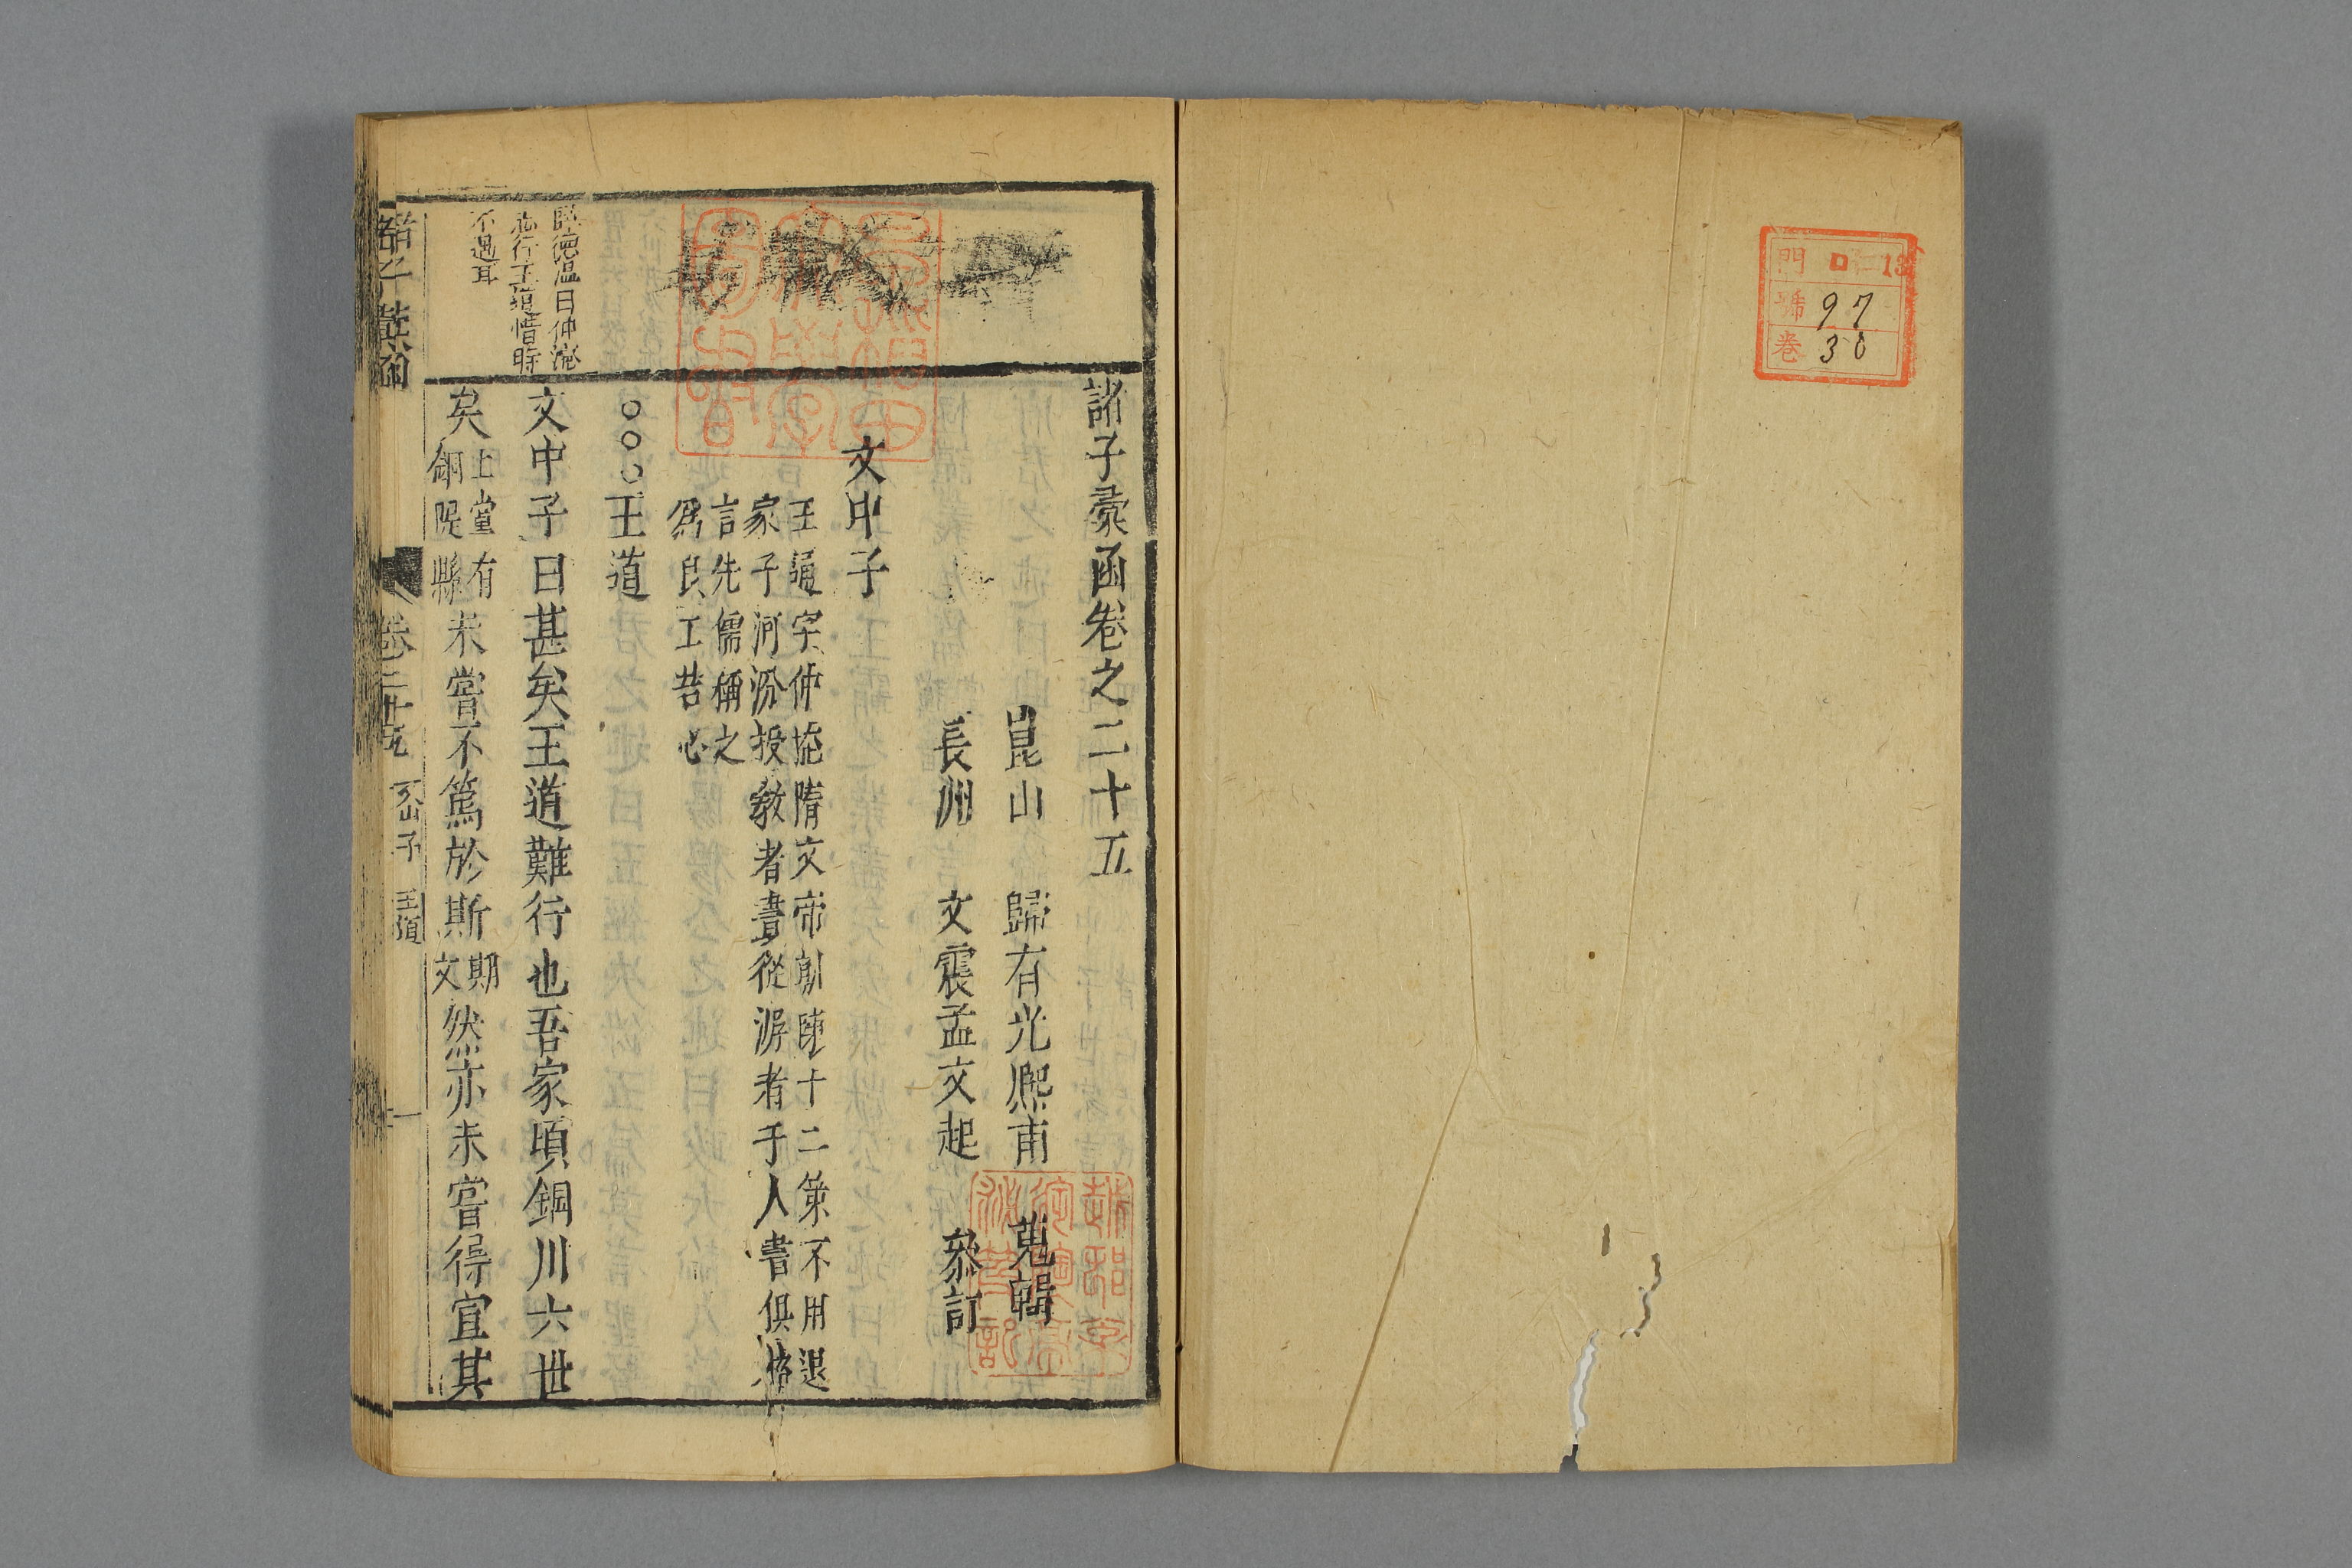 門 ロ 13
號 97
卷 30
諸子彙函卷之二十五
崑山 歸有光熙甫 蒐輯
長洲 文震孟文起 叅訂
文中子
王通字仲淹隋文帝時獻十二策不用退
家于河汾授教者晝從游者千人書俱格
言先儒稱之
爲良工苦心
○○○王道
文中子曰甚矣王道難行也吾家頃銅川六世
矣上黨有銅隄縣未嘗不篤於斯期文然亦未嘗得宜其
德溫曰仲淹
志行王道惜時
不遇耳
諸子彙函 卷二十五 王道 一